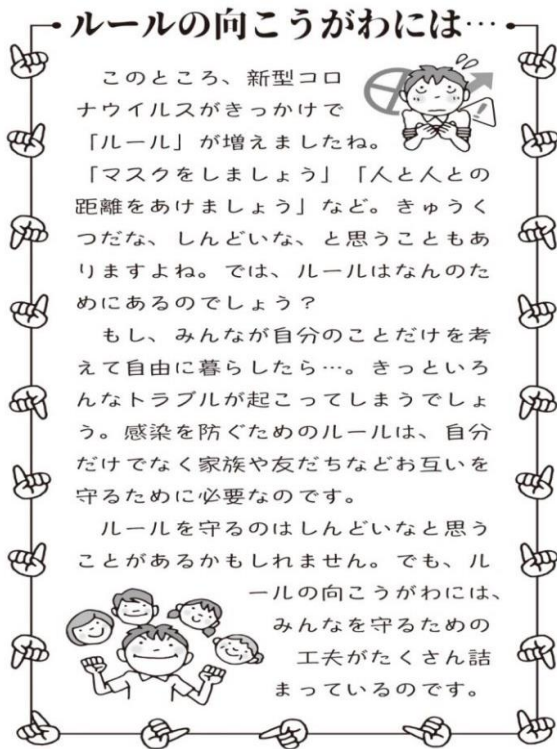 ルールの向こうがわには…
このところ、新型コロ
ナウイルスがきっかけで
「ルール」が増えましたね。
「マスクをしましょう」「人と人との
距離をあけましょう」など。きゅうく
つだな、しんどいな、と思うこともあ
りますよね。では、ルールはなんのた
めにあるのでしょう？
もし、みんなが自分のことだけを考
えて自由に暮らしたら…。きっといろ
んなトラブルが起こってしまうでしょ
う。感染を防ぐためのルールは、自分
だけでなく家族や友だちなどお互いを
守るために必要なのです。
ルールを守るのはしんどいなと思う
ことがあるかもしれません。でも、ル
ールの向こうがわには、
みんなを守るための
工夫がたくさん詰
まっているのです。